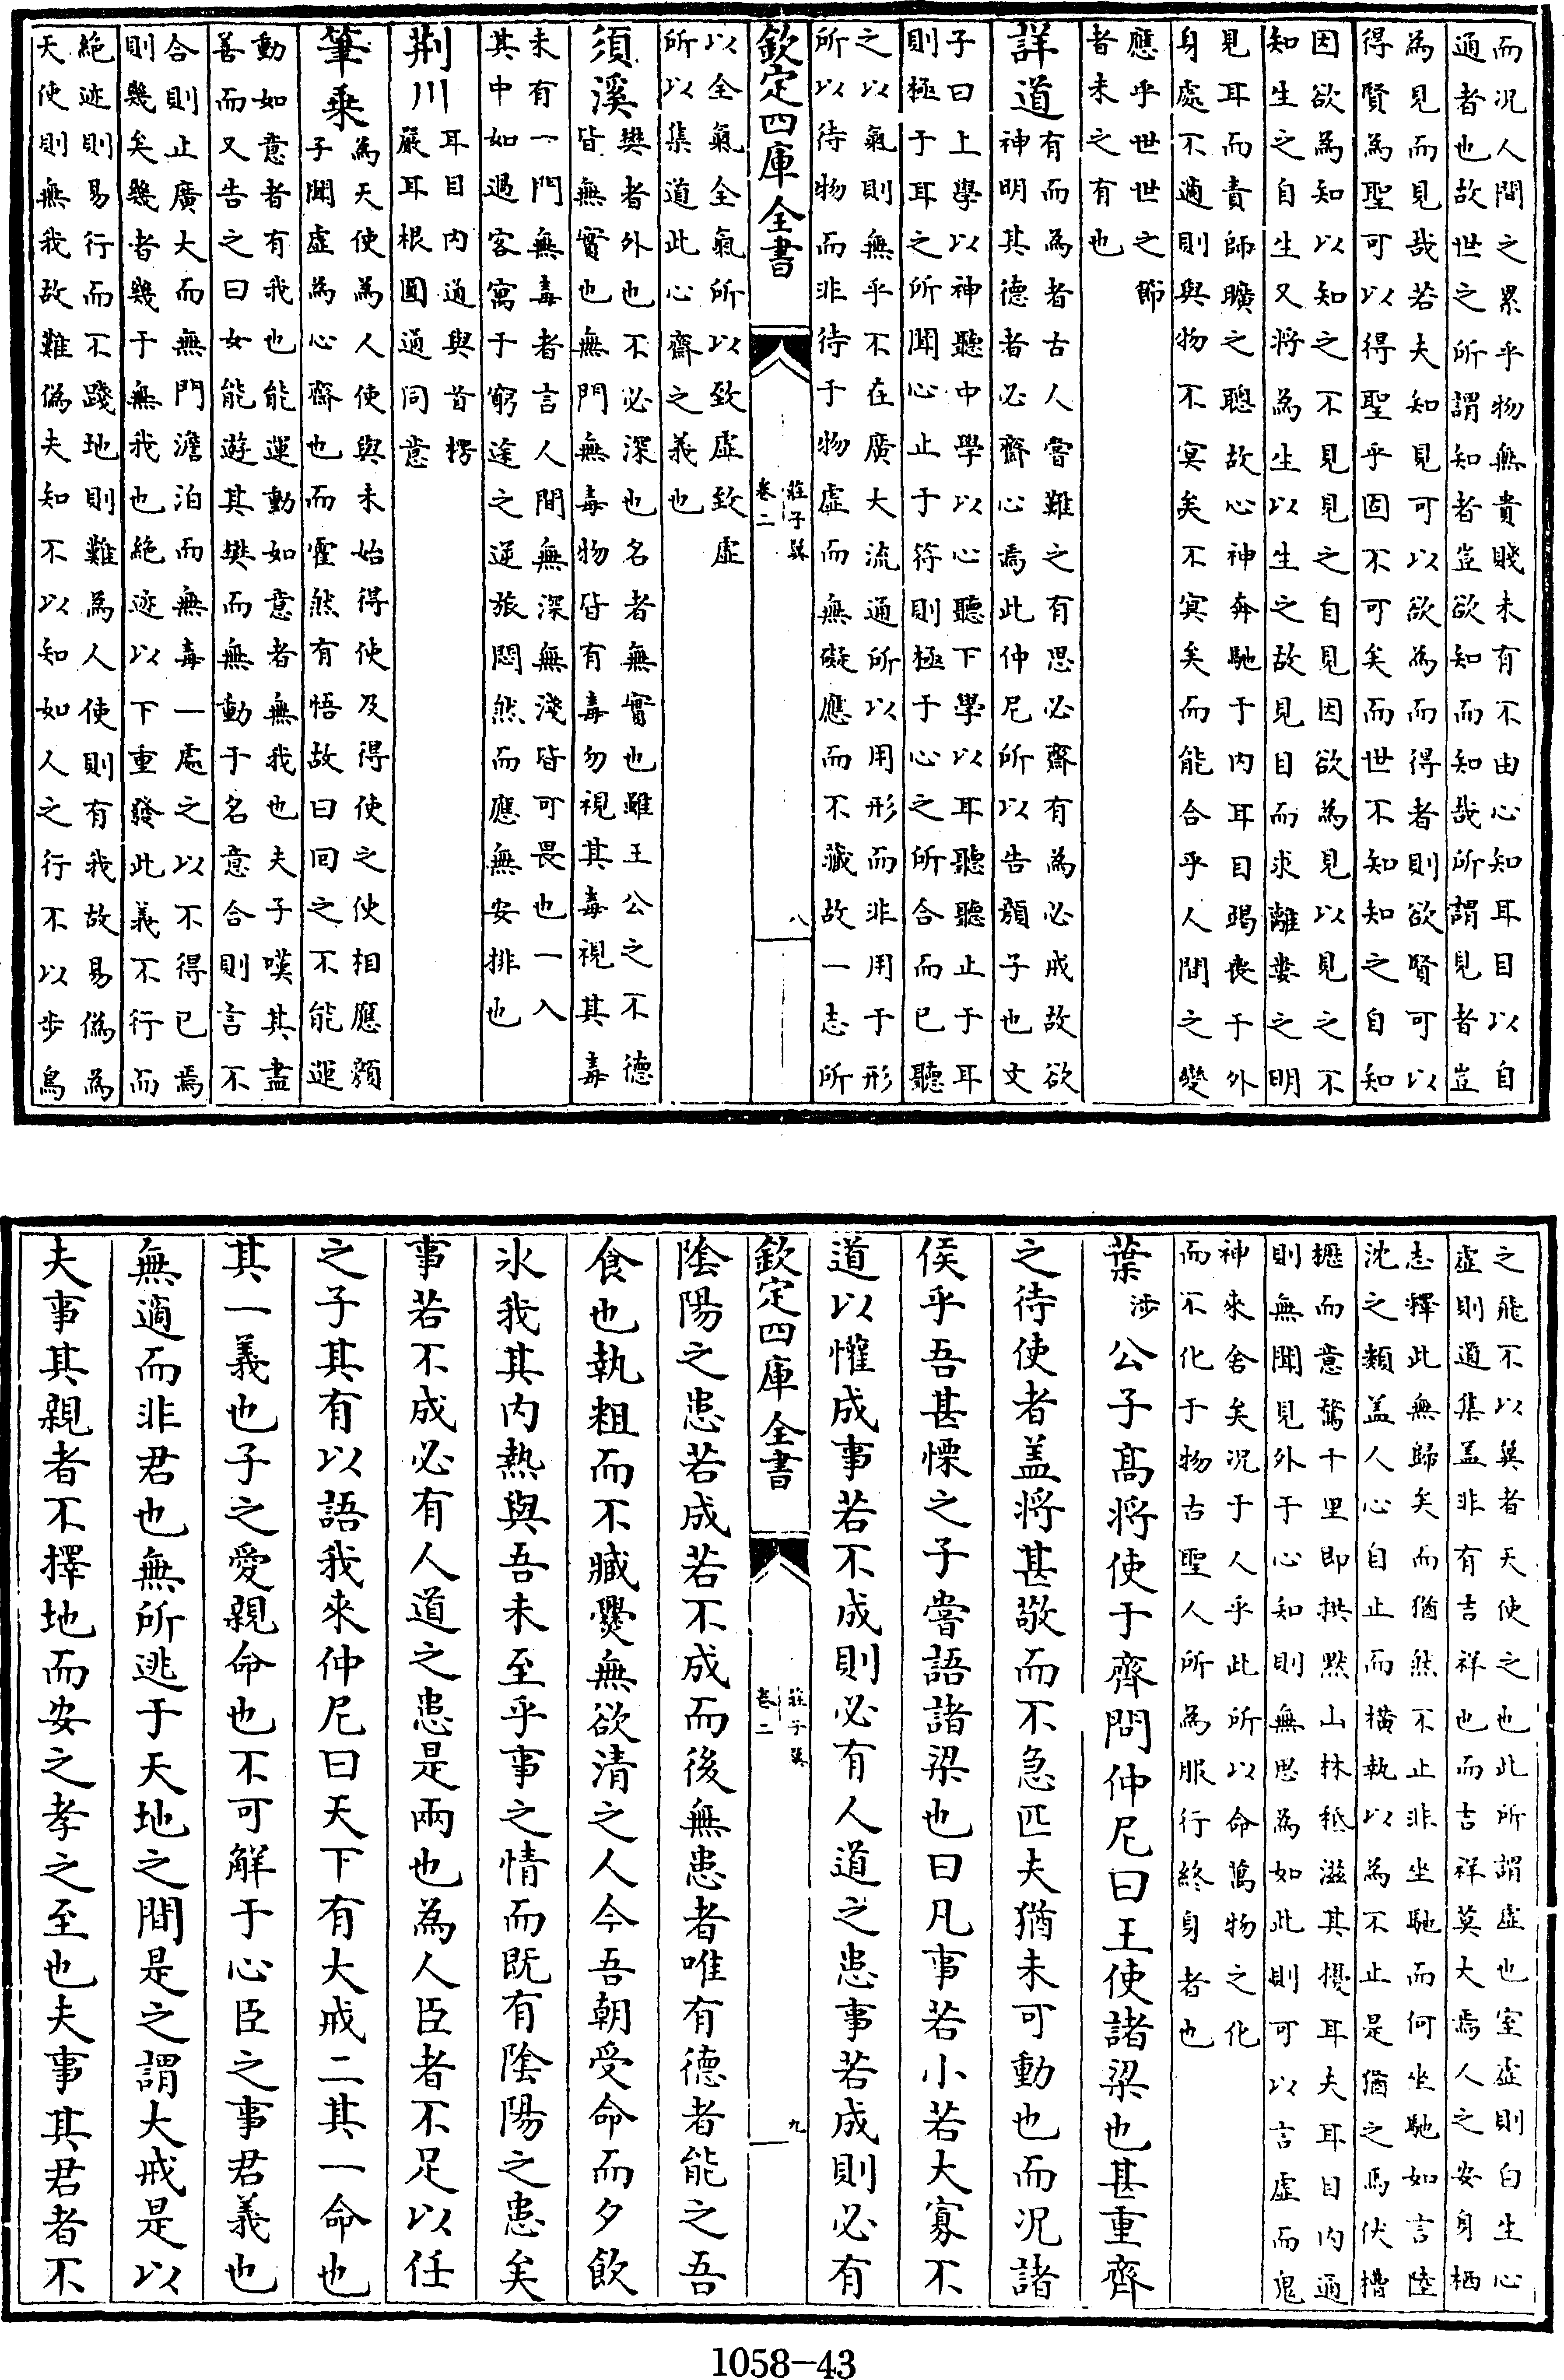 而況人間之累乎物無貴賤未有不由心知耳目以自
通者也故世之所謂知者豈欲知而知哉所謂見者豈
為見而見哉若夫知見可以欲為而得者則欲賢可以
得賢為聖可以得聖乎固不可矣而世不知知之自知
因欲為知以知之不見見之自見因欲為見以見之不
知生之自生又將為生以生之故見目而求離婁之明
見耳而責師曠之聰故心神奔馳于內耳目竭喪于外
身處不適則與物不冥矣不冥矣而能合乎人間之變
應乎世世之節
者未之有也
詳道
有而為者古人嘗難之有思必齋有為必戒故欲
神明其德者必齋心焉此仲尼所以告顏子也文
子曰上學以神聽中學以心聽下學以耳聽聽止于耳
則極于耳之所聞心止于符則極于心之所合而已聽
之以氣則無乎不在廣大流通所以用形而非用于形
所以待物而非待于物虛而無礙應而不藏故一志所
欽定四庫全書
莊子翼
卷二
八
以全氣全氣所以致虛致虛
所以集道此心齋之義也
須溪
樊者外也不必深也名者無實也雖王公之不德
皆無實也無門無毒物皆有毒勿視其毒視其毒
未有一門無毒者言人間無深無淺皆可畏也一入
其中如過客寓于窮途之逆旅悶然而應無安排也
荆川
耳目內通與首楞
嚴耳根圓通同意
筆乘
為天使為人使與未始得使及得使之使相應顏
子聞虛為心齋也而霍然有悟故曰回之不能運
動如意者有我也能運動如意者無我也夫子嘆其盡
善而又告之曰女能遊其樊而無動于名意合則言不
合則止廣大而無門澹泊而無毒一處之以不得已焉
則幾矣幾者幾于無我也絶迹以下重發此義不行而
絶迹則易行而不踐地則難為人使則有我故易偽為
天使則無我故難偽夫知不以知如人之行不以步鳥
之飛不以翼者天使之也此所謂虛也室虛則白生心
虛則道集蓋非有吉祥也而吉祥莫大焉人之安身栖
志釋此無歸矣而猶然不止非坐馳而何坐馳如言陸
沈之類盖人心自止而横執以為不止是猶之馬伏槽
櫪而意騖千里即拱默山林秪滋其擾耳夫耳目內通
則無聞見外于心知則無思為如此則可以言虛而鬼
神來舍矣況于人乎此所以命萬物之化
而不化于物古聖人所為服行終身者也
葉涉公子高將使于齊問仲尼曰王使諸梁也甚重齊
之待使者盖將甚敬而不急匹夫猶未可動也而况諸
侯乎吾甚慄之子嘗語諸梁也曰凡事若小若大寡不
道以懽成事若不成則必有人道之患事若成則必有
欽定四庫全書
莊子翼
卷二
九
陰陽之患若成若不成而後無患者唯有德者能之吾
食也執粗而不臧爨無欲清之人今吾朝受命而夕飲
氷我其內熱與吾未至乎事之情而既有陰陽之患矣
事若不成必有人道之患是兩也為人臣者不足以任
之子其有以語我來仲尼曰天下有大戒二其一命也
其一義也子之愛親命也不可解于心臣之事君義也
無適而非君也無所逃于天地之間是之謂大戒是以
夫事其親者不擇地而安之孝之至也夫事其君者不
1058-43